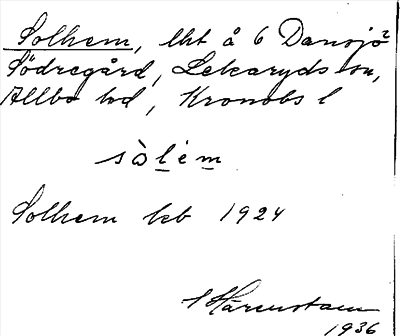 Solhem, lht å 6 Dansjö
Södregård, Lekaryds sn,
Allbo hd, Kronobs l
sòlem
Solhem kb 1924
Hårenstam
1936